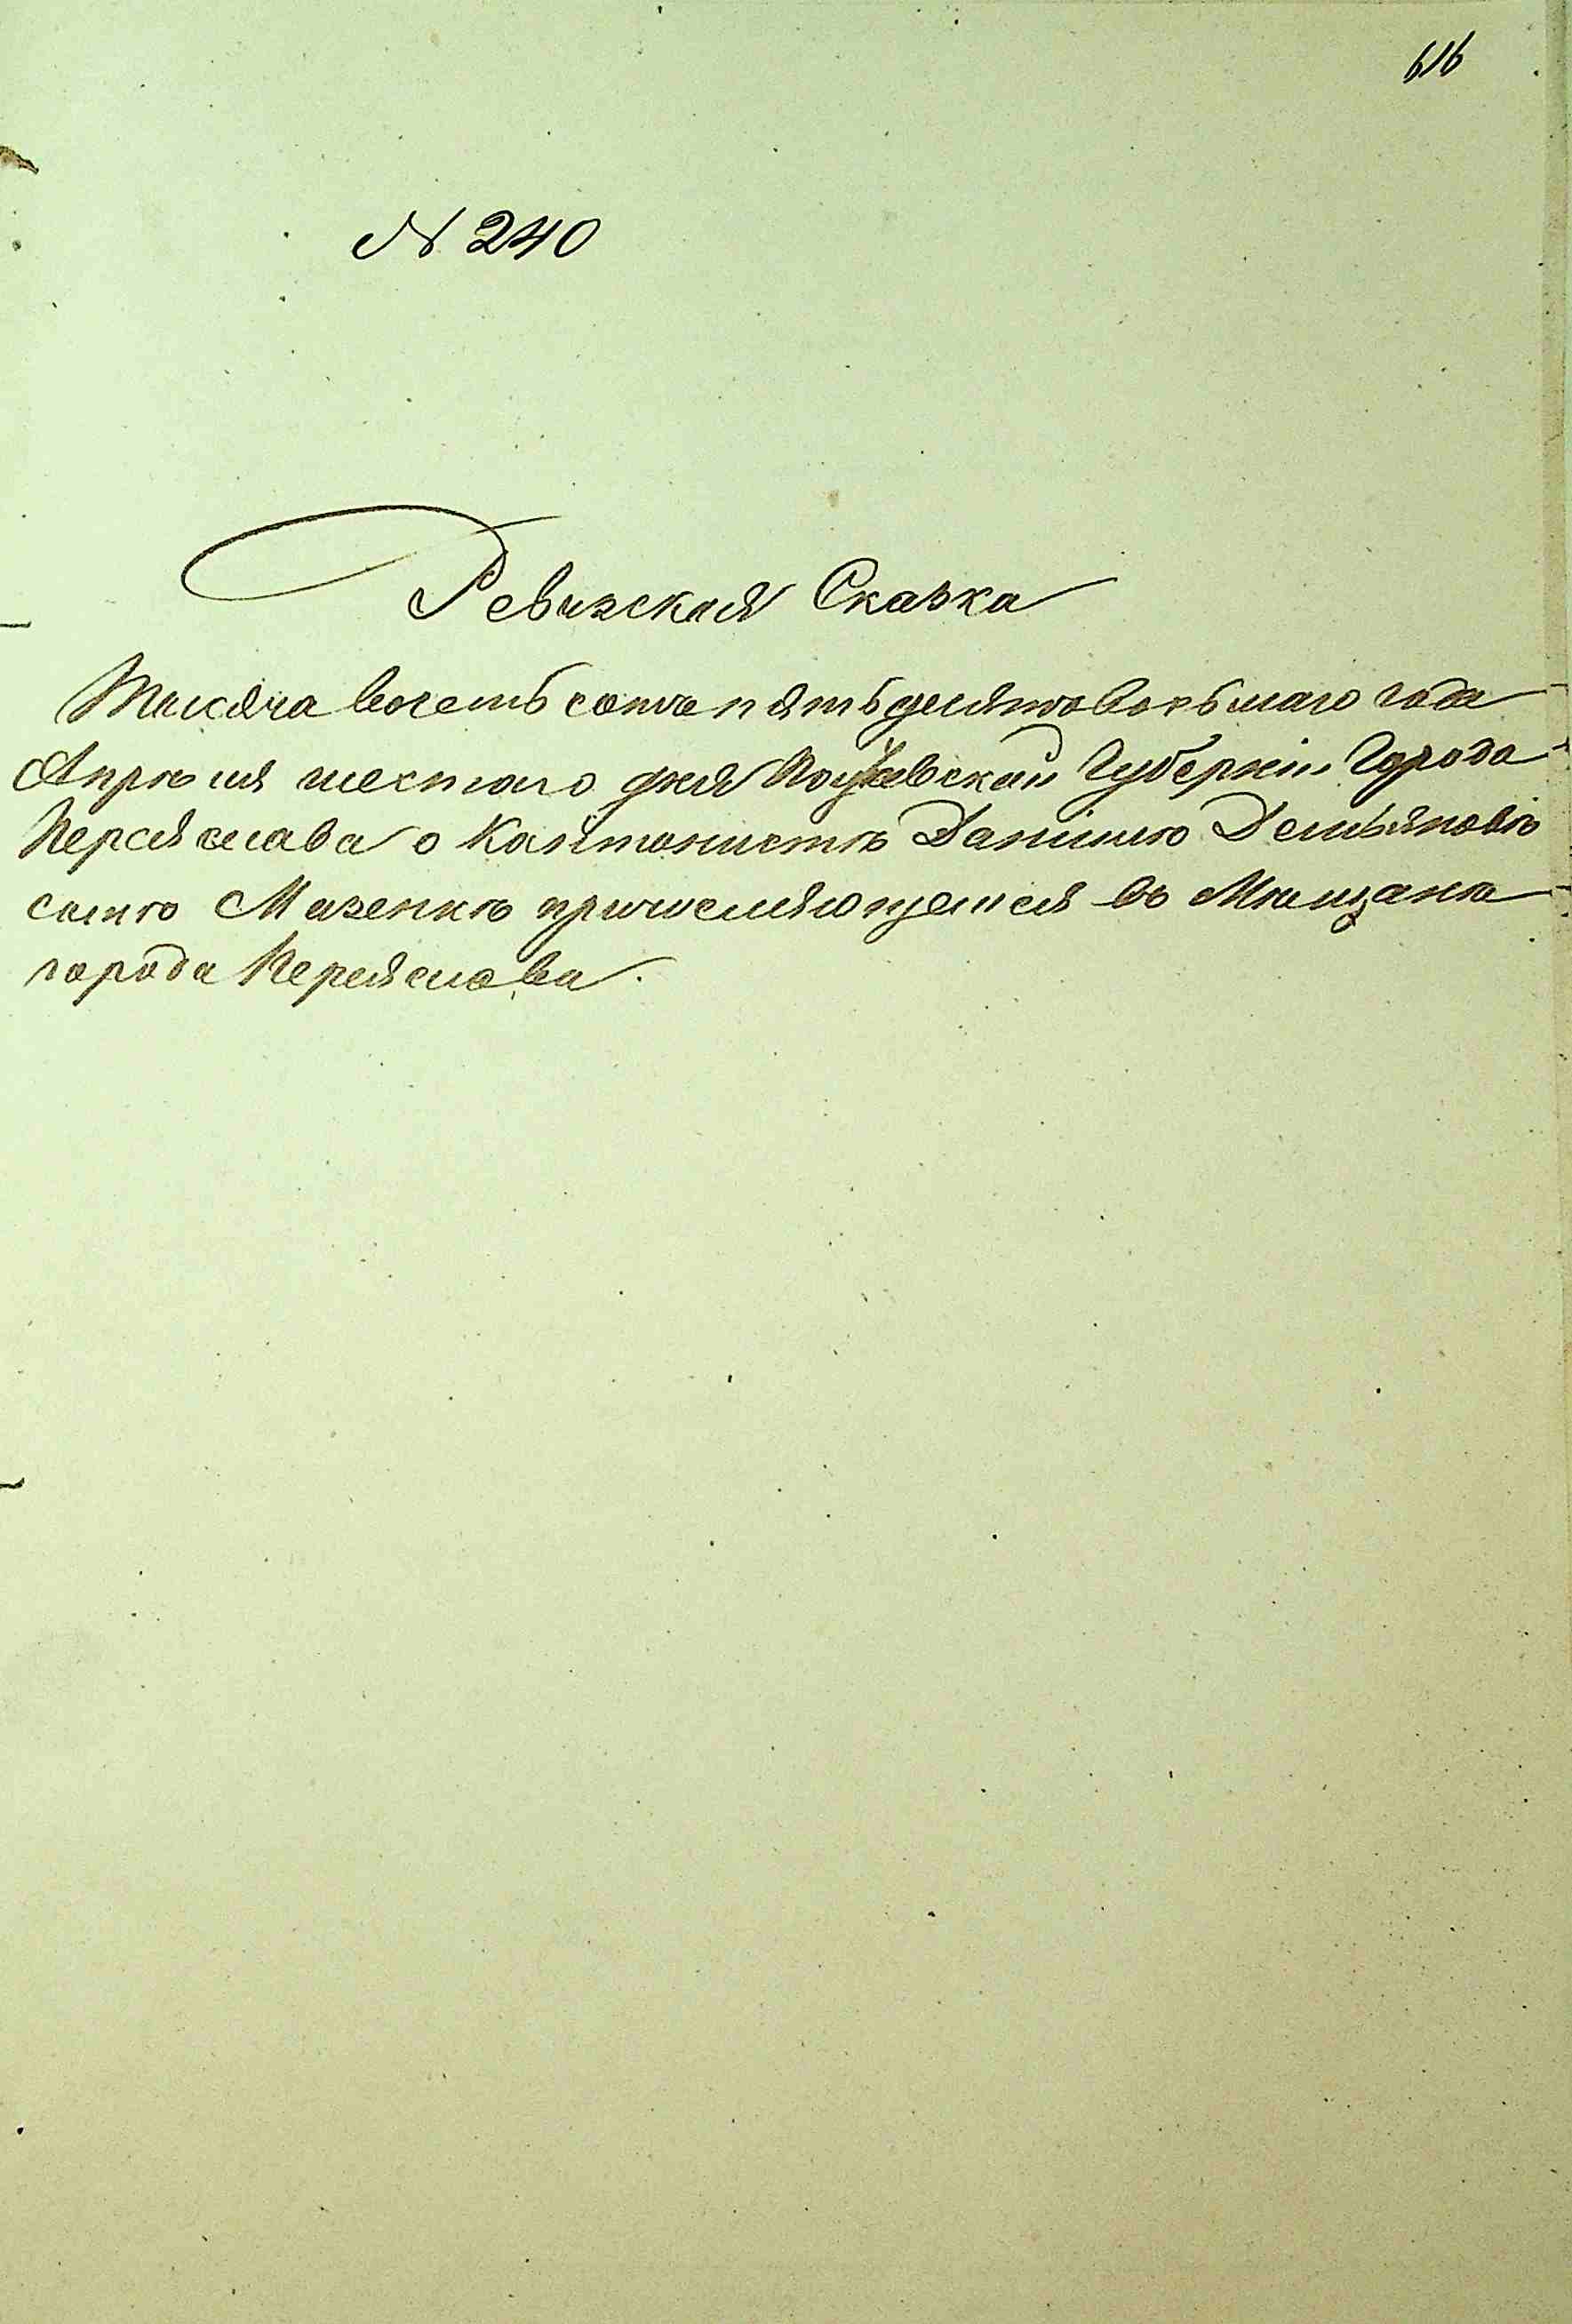 616
№ 240
Ревизская Сказка
Тысяча восемь сотъ пятьдесятъ восьмаго года
Апрѣля шестаго дня Полтавской Губерніи Города
Переяслава о Кантонистѣ Даніилѣ Демьяновѣ
сынѣ Мазенкѣ причисляющемся въ Мѣщане
города Переяслава.